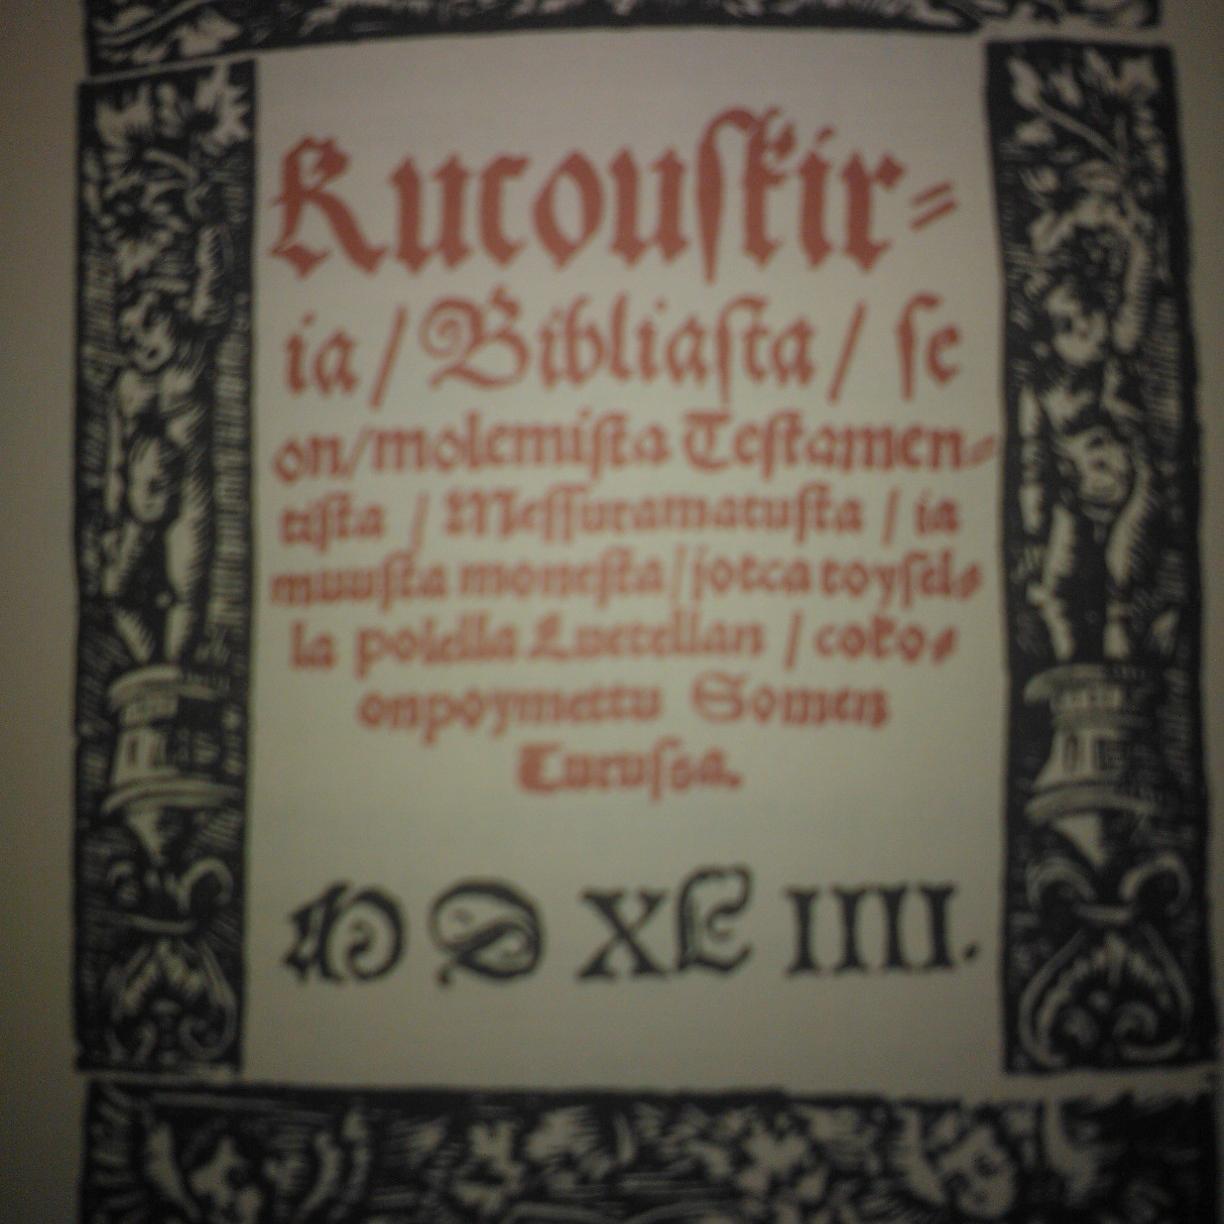 Rucouskir⸗
ia / Bibliasta / se
on / molemista Testamen⸗
tista / Messuramatusta / ia
muusta monesta / jotca toysel⸗
la polella Luetellan / coko⸗
onpoymettu Somen
Turussa.
M D XL IIII.